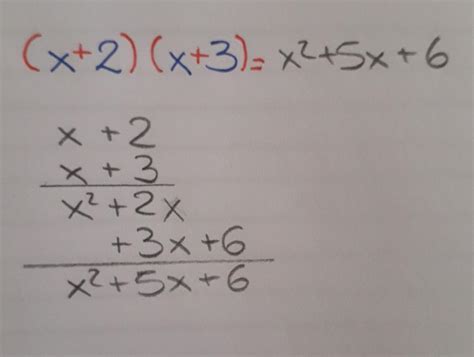 (x+2)(x+3)= x²+5x+6
x + 2
x + 3
x² + 2x
+ 3x + 6
x² + 5x + 6